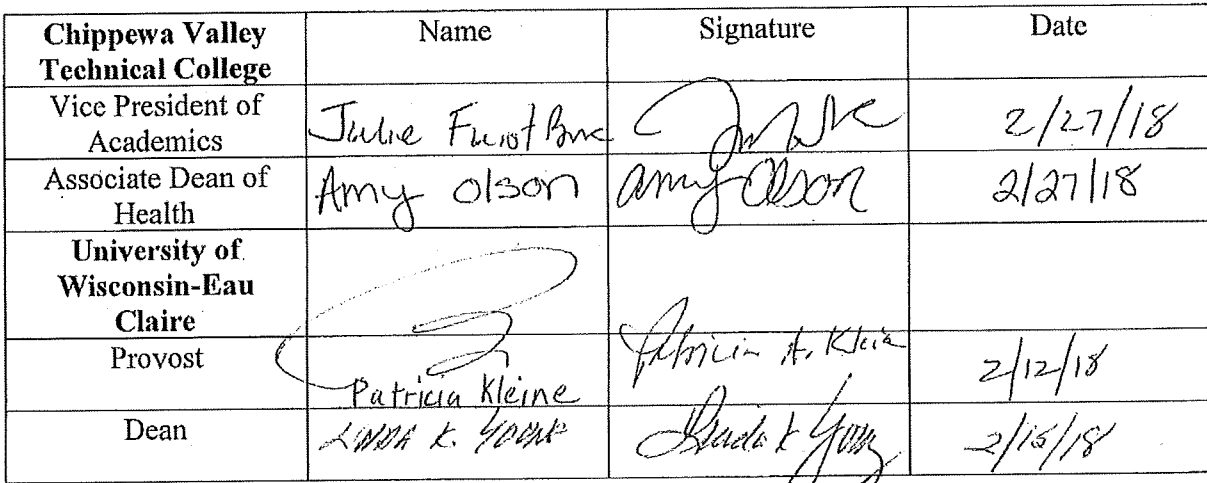 Chippewa Valley Technical College Name Signature Date
Vice President of Academics Julie 2/27/18
Associate Dean of Health Amy Olson Amy Olson 2/27/18
University of Wisconsin-Eau Claire
Provost Patricia Kleine Patricia A. 2/12/18
Dean Linda K. Young Linda K Young 2/15/18